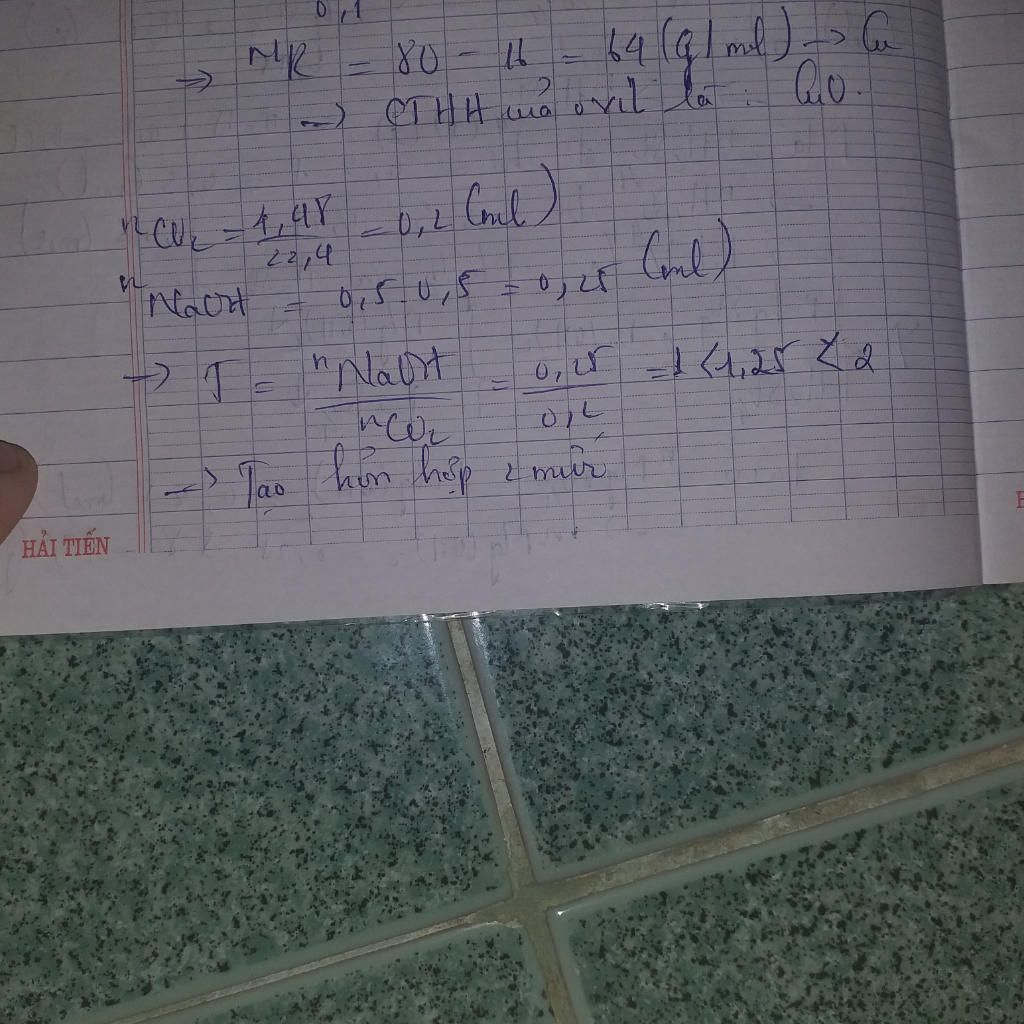 0,1
=> MR = 80 - 16 = 64 (g/mol) -> Cu
-> CTHH của oxit là : CuO.
nCO2 = 4,48/22,4 = 0,2 (mol)
nNaOH = 0,5.0,5 = 0,25 (mol)
-> T = nNaOH/nCO2 = 0,25/0,2 = 1<1,25 < 2
-> Tạo hỗn hợp 2 muối
HẢI TIẾN